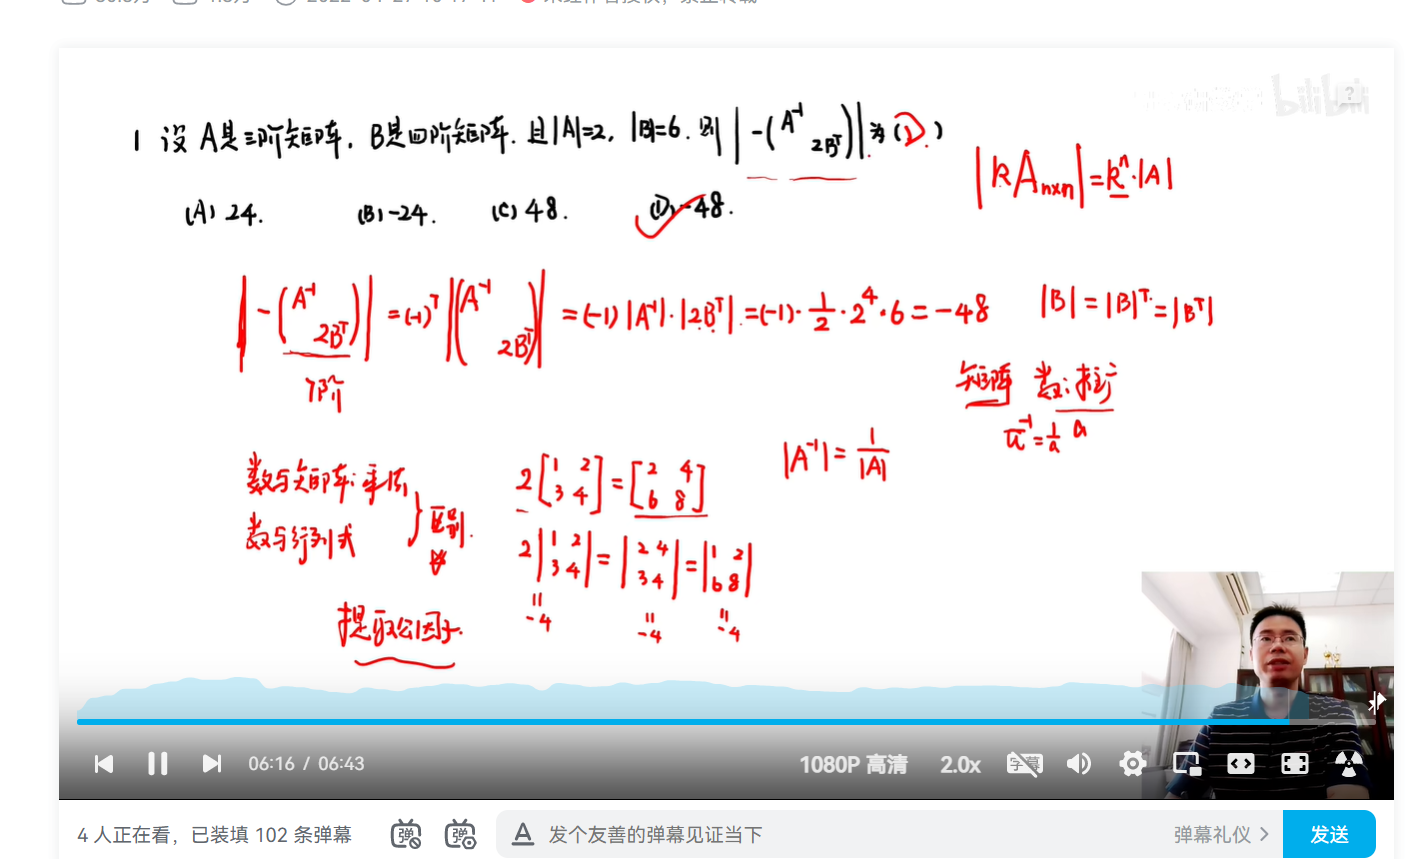 2022-04-27 16:17:41 未经作者授权，禁止转载
bilibili
1 设 A是三阶矩阵, B是四阶矩阵. 且|A|=2, |B|=6. 则 |-(A⁻¹ 2Bᵀ)| 为 (D)
(A) 24. (B) -24. (C) 48. (D) -48.
|kAₙₓₙ|=kⁿ·|A|
|-(A⁻¹ 2Bᵀ)| = (-1)⁷ |(A⁻¹ 2Bᵀ)| = (-1) |A⁻¹|·|2Bᵀ| = (-1)·1/2·2⁴·6 = -48
7阶
|B| = |B|ᵀ = |Bᵀ|
矩阵 数: 推广
a⁻¹=1/a a
|A⁻¹| = 1/|A|
数与矩阵: 乘法
数与行列式
区别.
2[1 2 3 4] = [2 4 6 8]
2|1 2 3 4| = |2 4 3 4| = |1 2 6 8|
-4 -4 -4
提取公因子.
06:16 / 06:43
1080P 高清
2.0x
字幕
4 人正在看，已装填 102 条弹幕
弹
弹
A
发个友善的弹幕见证当下
弹幕礼仪 >
发送